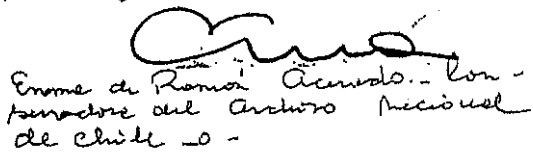 Enome de Ramón Acevedo.- Con-
servadora del Archivo Nacional
de Chile -o-